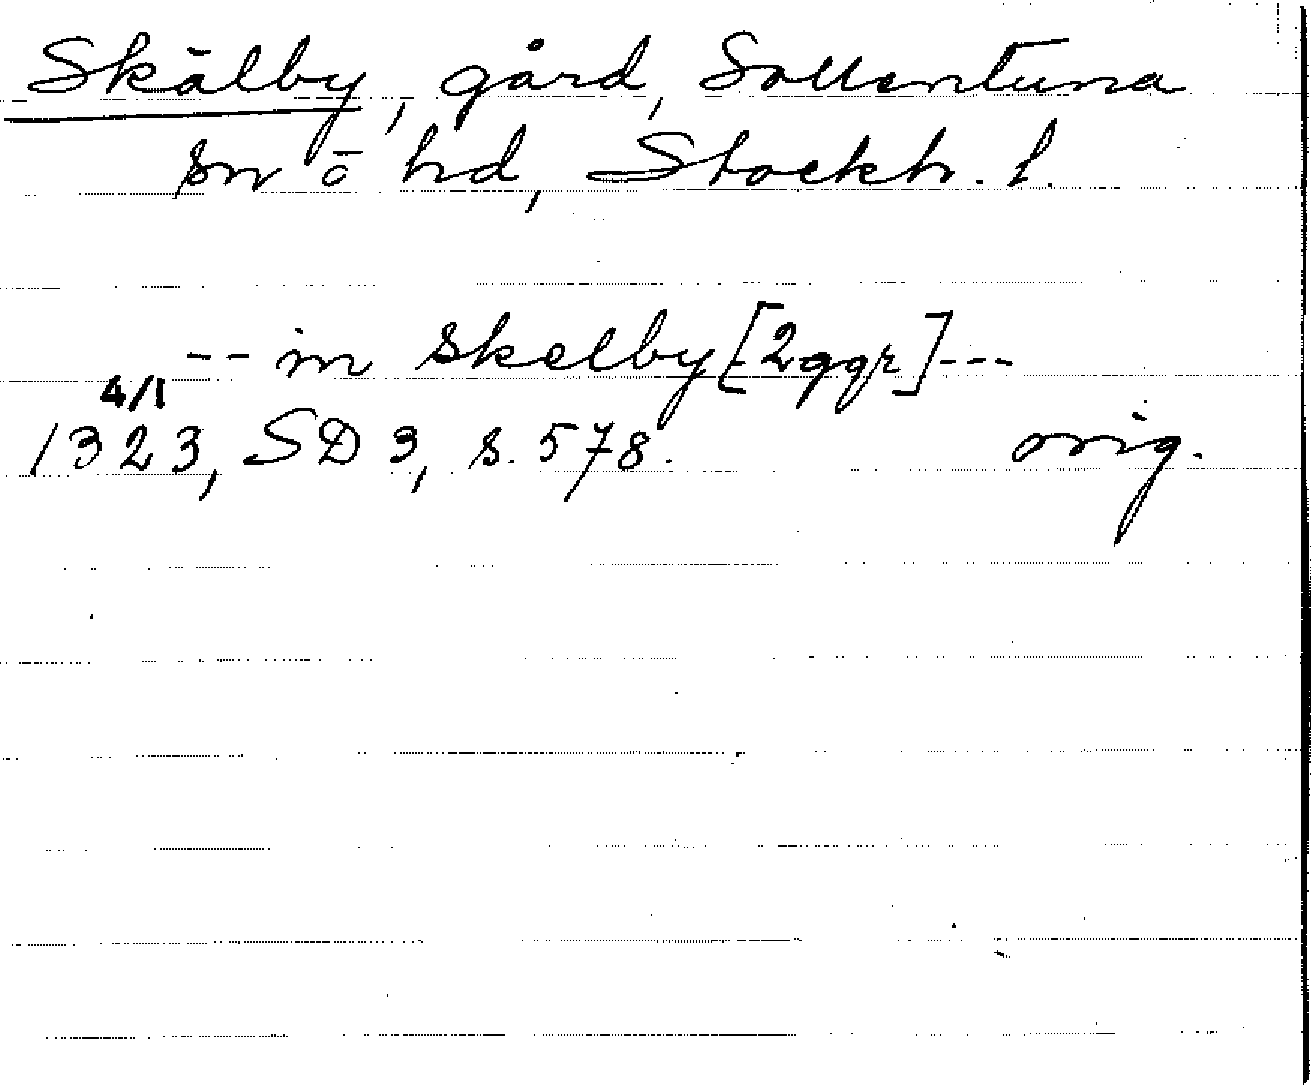 Skälby, gård, Sollentuna
sn ō hd, Stockh. l.
-- in skelby [2ggr] ---
4/1
1323, SD 3, s. 578. orig.